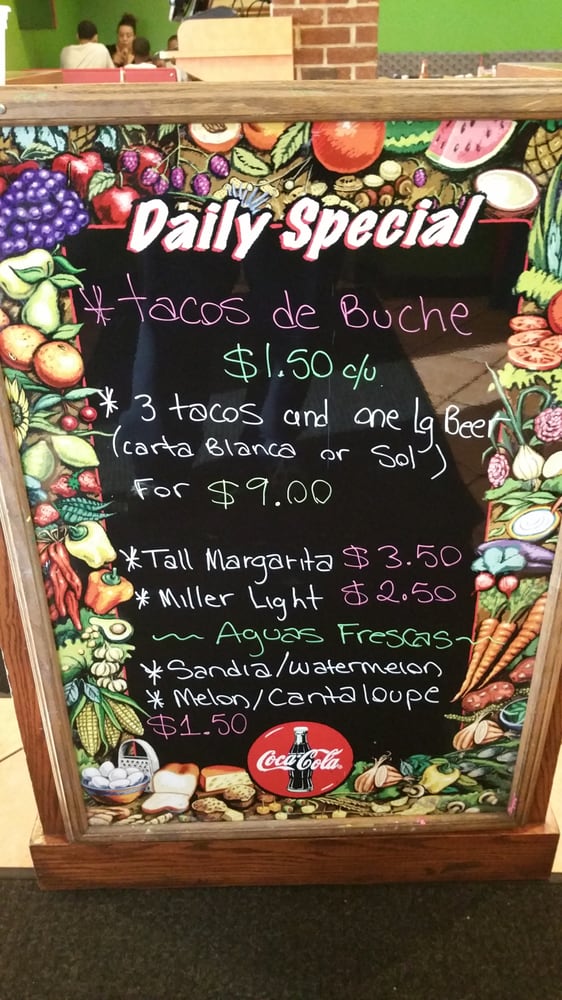 Daily Special
* tacos de Buche
$1.50 c/u
* 3 tacos and one lg Beer
(carta Blanca or Sol)
For $9.00
* Tall Margarita $3.50
* Miller Light $2.50
~ Aguas Frescas ~
* Sandia/watermelon
* Melon/Cantaloupe
$1.50
Coca-Cola